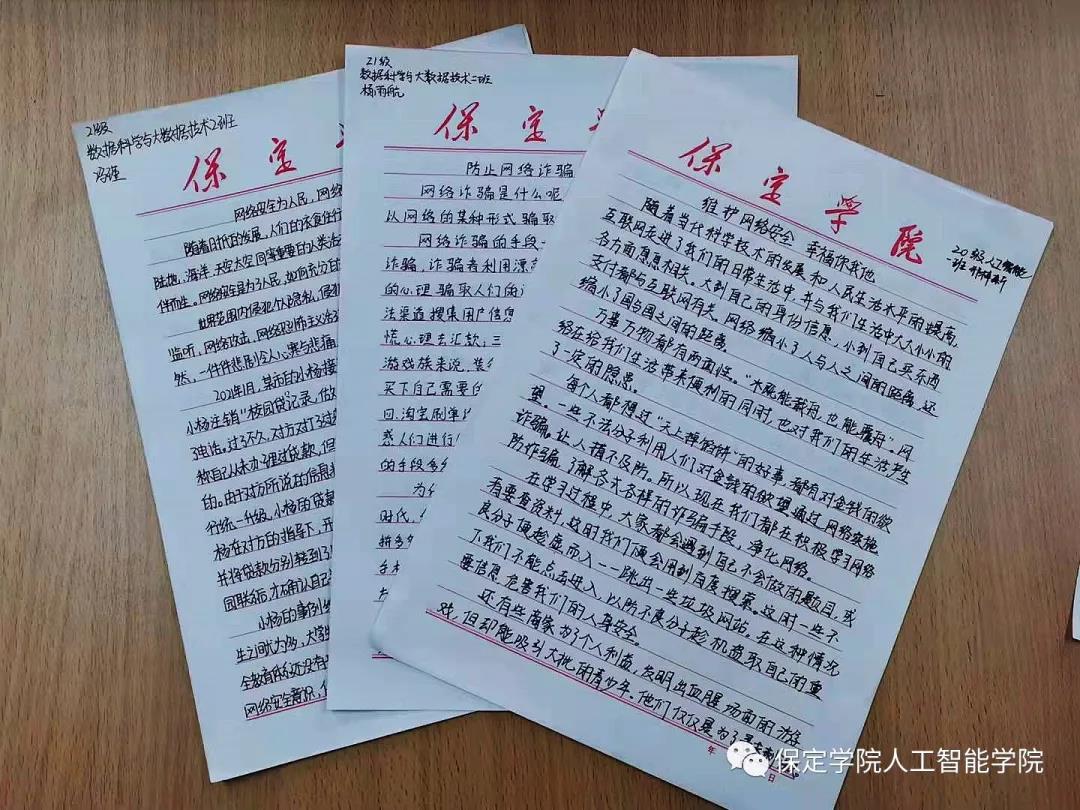 21级
数据科学与大数据技术2班
冯瑾
保定
网络安全为人民，网络
随着时代的发展，人们的衣食住行
陆地、海洋、天空太空同等重要的人类活
伴而生。网络安全是为了人民，如何充分的
世界范围内侵犯个人隐私，侵犯
监听，网络攻击，网络恐怖主义活
然，一件件悲剧令人心寒与悲痛
2021年1月，某市的小杨接
小杨注销“校园贷”记录，做
了电话。过了不久，对方又打了过
称自己从未办理过贷款，但
的。由于对方所说的信息
行统一升级，小杨的贷
杨在对方的指导下，开
并将贷款分别转到了
园联系后，才确认自己
小杨的事例
生之间尤为多，大学生
全教育体系还没有
网络安全意识，
21级
数据科学与大数据技术二班
杨雨航
保定
防止网络诈骗
网络诈骗是什么呢
以网络的某种形式骗取
网络诈骗的手段一
诈骗，诈骗者利用漂
的心理骗取人们的
法渠道搜集用户信息
慌心理去汇款；三
游戏族来说，装
买下自己需要的
四.淘宝刷单
惑人们进行
的手段多
为
时代，
拼多多
手
保定学院
20级人工智能
一班
维护网络安全 幸福你我他
随着当代科学技术的发展和人民生活水平的提高，
互联网走进了我们的日常生活中，并与我们生活中大大小小的
各方面息息相关。大到自己的身份信息，小到自己买东西
支付都与互联网有关。网络缩小了人与人之间的距离，还
缩小了国与国之间的距离。
万事万物都有两面性。“水能载舟，也能覆舟”。网
络在给我们生活带来便利的同时，也对我们的生活产生
了一定的隐患。
每个人都想过“天上掉馅饼”的好事，都有对金钱的欲
望。一些不法分子利用人们对金钱的欲望通过网络实施
诈骗。让人猝不及防。所以现在我们都在积极学习网络
防诈骗，了解各式各样的诈骗手段，净化网络。
在学习过程中，大家都会遇到自己不会做的题目，或
有要查资料，这时我们便会用到百度搜索。这时一些不
良分子便趁虚而入，一跳出一些垃圾网站。在这种情况
下我们不能点击进入，以防不良分子趁机盗取自己的重
要信息，危害我们的人身安全。
还有些商家为了个人利益，发明出血腥场面的游
戏，但却能吸引大批的青少年。他们仅仅是为了
年
日
保定学院人工智能学院